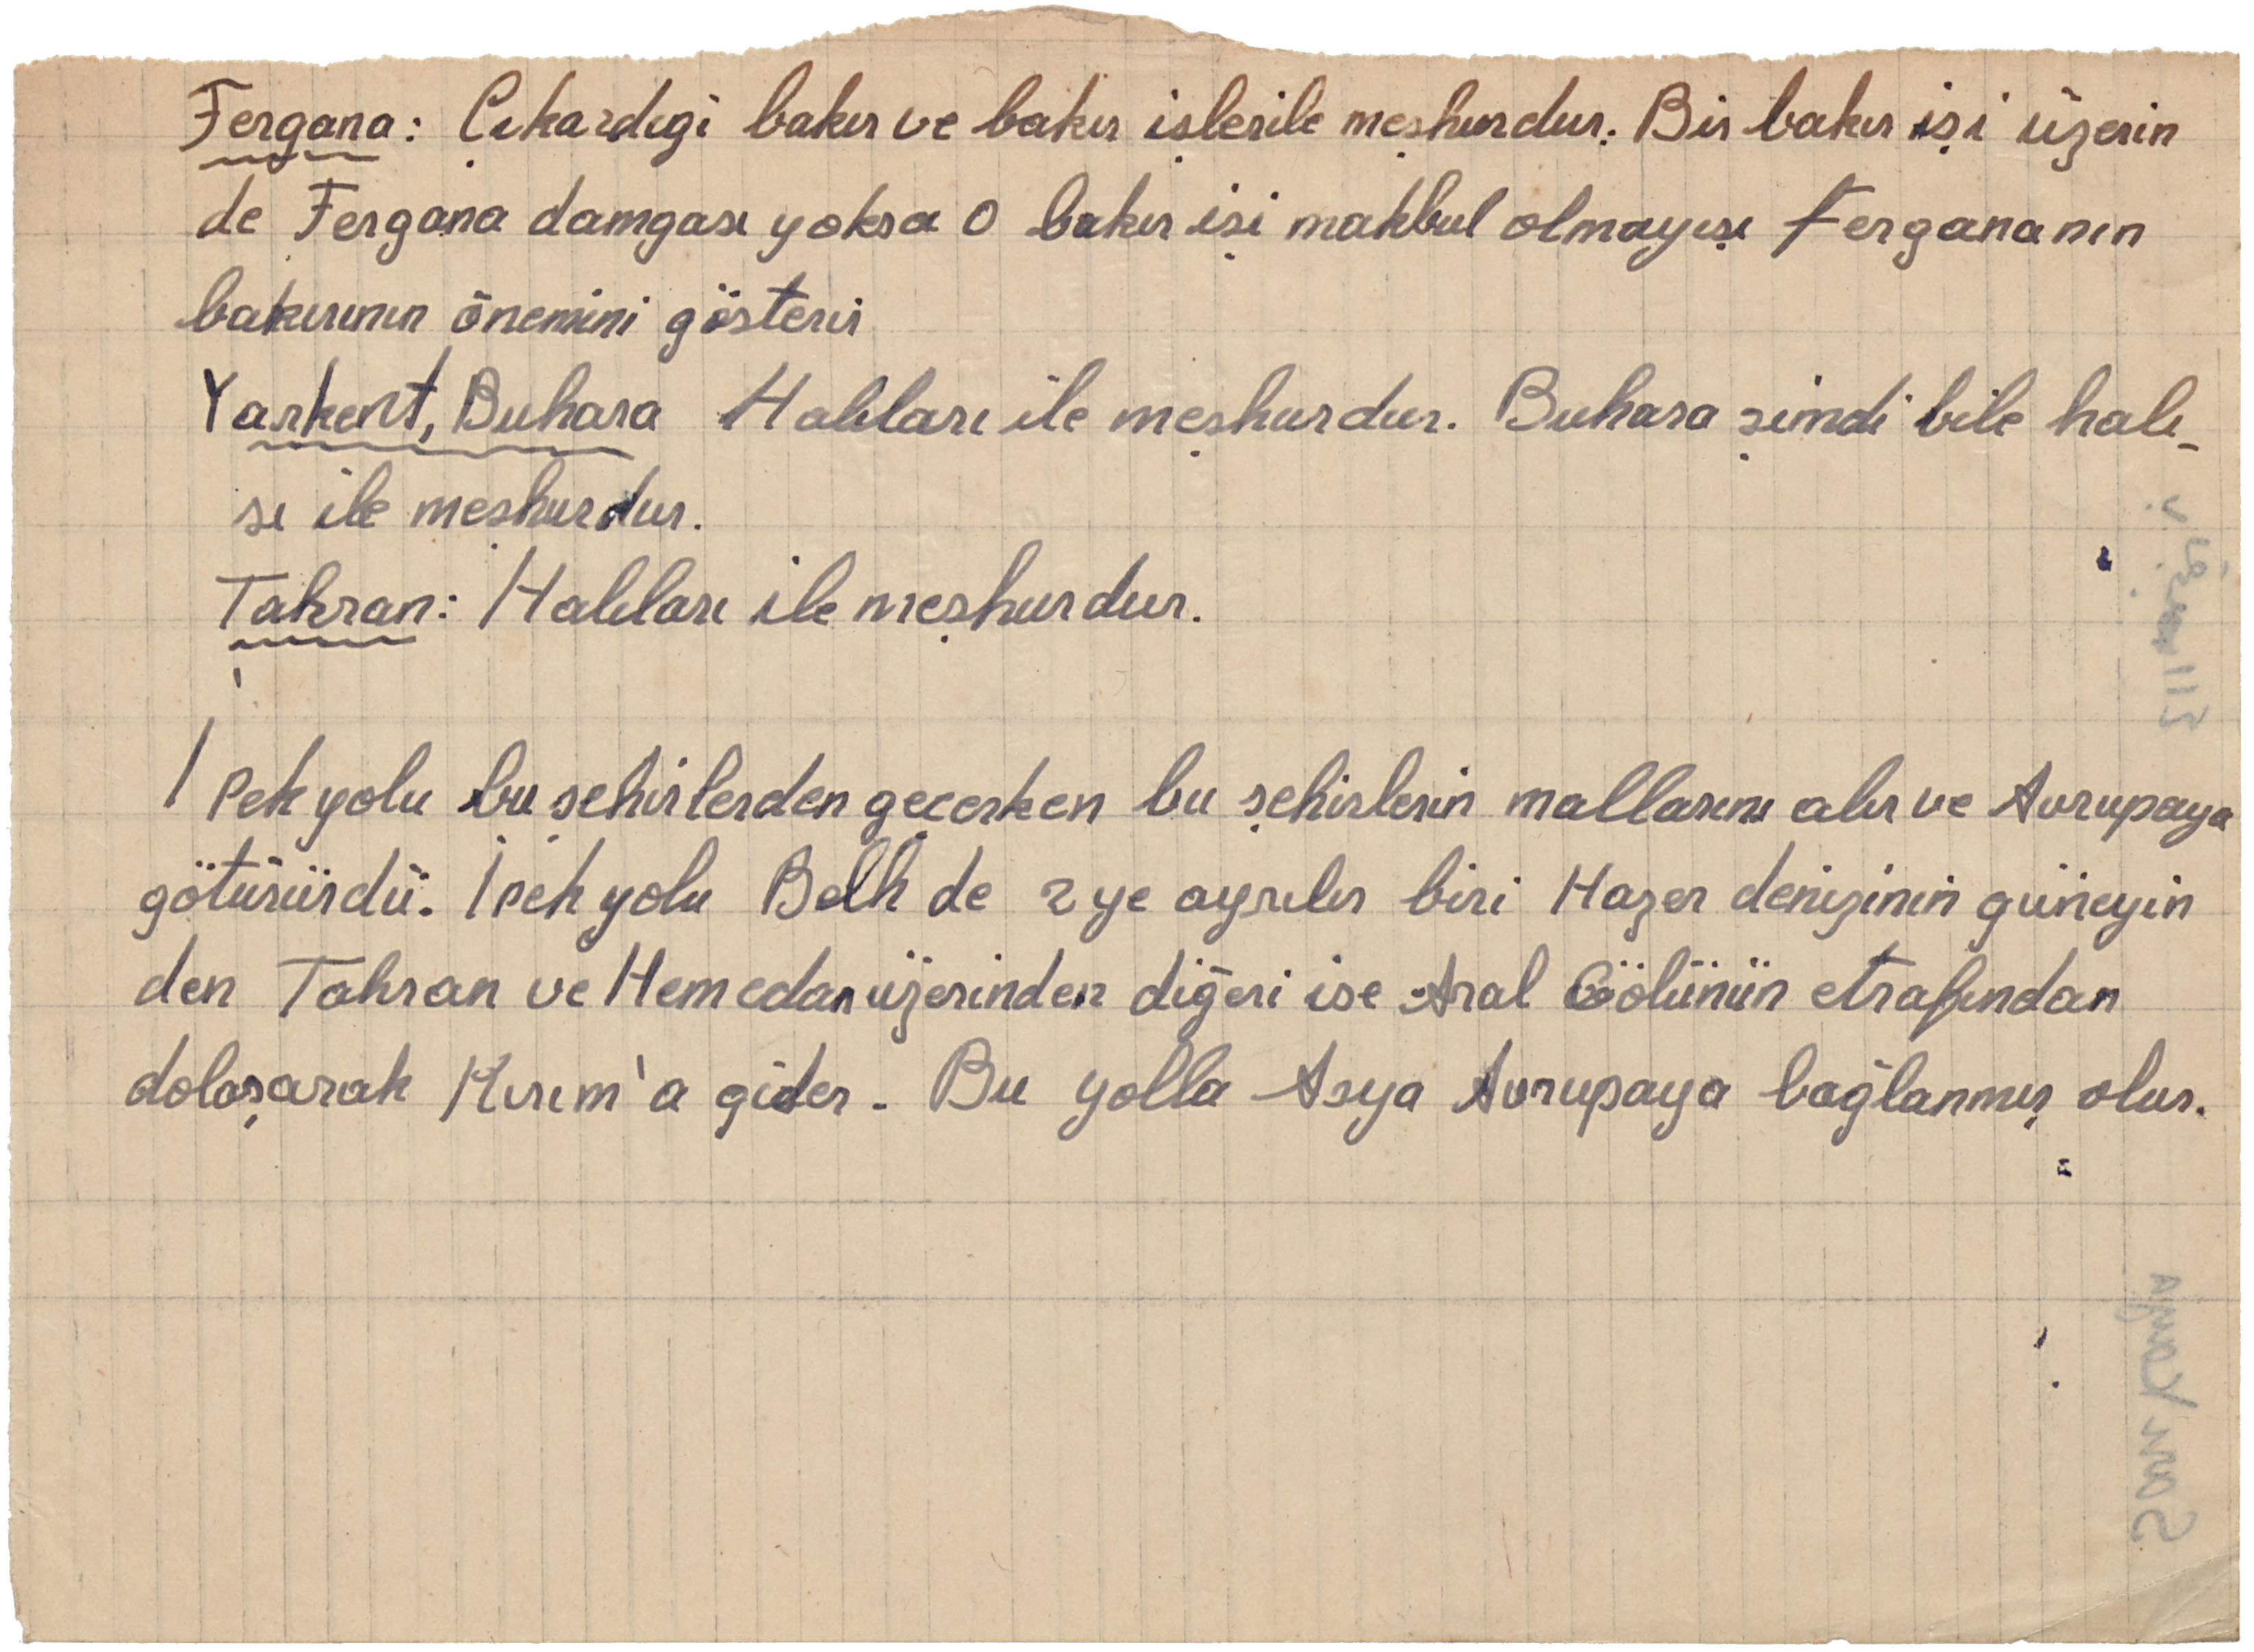 Fergana: Çıkardıgi bakır ve bakır işlerile meşhurdur. Bir bakır işi üzerin
de Fergana damgası yoksa o bakır işi makbul olmayışı Fergananın
bakırının önemini gösterir
Yarkent, Buhara Halıları ile meşhurdur. Buhara şimdi bile halı-
sı ile meşhurdur.
Tahran: Halıları ile meşhurdur.
İpek yolu bu şehirlerden geçerken bu şehirlerin mallarını alır ve Avrupaya
götürürdü. İpek yolu Belh de 2 ye ayrılır biri Hazer denizinin güneyin
den Tahran ve Hemedan üzerinden diğeri ise Aral Gölünün etrafından
dolaşarak Kırım'a gider. Bu yolla Asya Avrupaya bağlanmış olur.